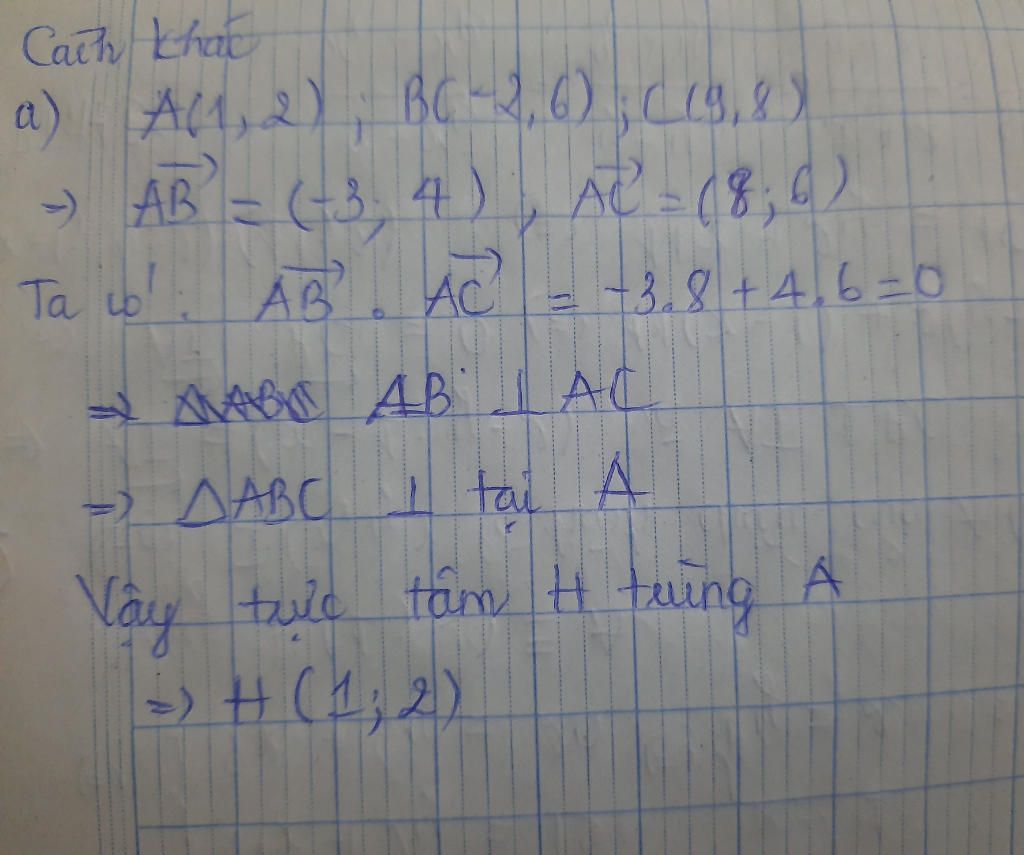 Cách khác
a) A(1, 2) ; B(-2, 6) ; C(9, 8)
=> $\overrightarrow{AB}$ = (-3; 4) , $\overrightarrow{AC}$ = (8; 6)
Ta có: $\overrightarrow{AB}$ . $\overrightarrow{AC}$ = -3.8 + 4.6 = 0
=> AB ⊥ AC
=> ΔABC ⊥ tại A
Vậy trực tâm H trùng A
=> H (1; 2)